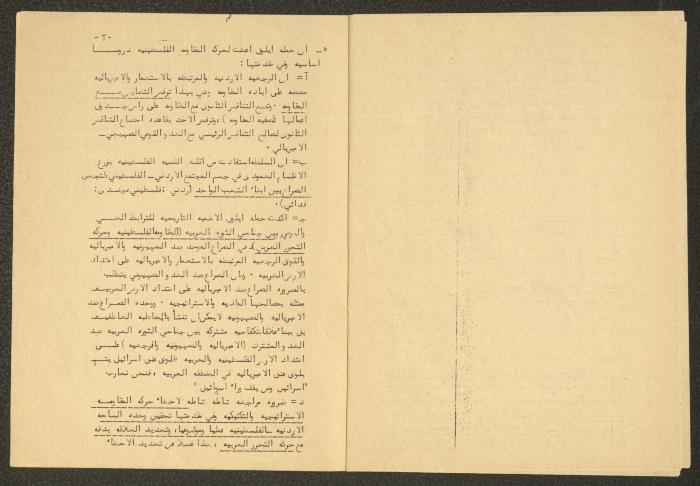 -٢-
٥- ان حملة ايلول اعطت لحركة المقاومة الفلسطينية دروسا
اساسية وفي مقدمتها :
أ= ان الرجعية الاردنية والمرتبطة بالاستعمار والامبريالية
مصممة على ابادة المقاومة وهي بهذا ترفض التعايش مع
المقاومة . وتضع التناقض الثانوي مع المقاومة على رأس جدول
اعمالها (تصفية المقاومة) ، وترفض الاخذ بقاعدة اخضاع التناقض
الثانوي لصالح التناقض الرئيسي مع العدو القومي الصهيوني -
الامبريالي .
ب= ان السلطة استفادت من
الانقسام العمودي في جسم المجتمع الاردني - الفلسطيني
الصراع بين ابناء الشعب الواحد (اردني : فلسطيني ، جندي :
فدائي) .
ج= اكدت حملة ايلول الاهمية التاريخية للترابط
بين جناحي الثورة العربية (المقاومة الفلسطينية وحركة
التحرر العربي) في الصراع الموحد ضد الصهيونية والامبريالية
والقوى الرجعية المرتبطة بالاستعمار والامبريالية على امتداد
الارض العربية . وان الصراع ضد العدو الصهيوني يتطلب
بالضرورة الصراع ضد الامبريالية على امتداد الارض العربية
ممثلة بمصالحها المادية والاستراتيجية . ووحدة الصراع ضد
الامبريالية والصهيونية لا يمكن ان تنشأ
بل ببناء علاقات كفاحية مشتركة بين جناحي الثورة العربية ضد
العدو المشترك (الامبريالية والصهيونية والرجعية) على
امتداد الارض الفلسطينية والعربية فلوي عنق اسرائيل يتم
بلوي عنق الامبريالية في المنطقة العربية ، فنحن نحارب
"اسرائيل ومن يقف وراء اسرائيل"
د= ضرورة مراجعة شاملة لاخطاء حركة المقاومة
الاستراتيجية والتكتيكية وفي مقدمتها تحقيق وحدة الساحة
الاردنية - الفلسطينية عمليا وموضوعيا، وتحديد العلاقة بدقة
مع حركة التحرر العربية ، هذا فضلا عن تحديد الاخطاء